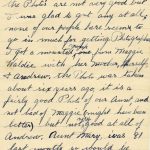 The Photo's are not very good but
I was glad to get any at all,
none of our people here seems to
go in much for getting Photographed
I got a mounted one from Maggie
Waldie with her Mother, herself,
& Andrew. the Photo was taken
about six years ago it is a
fairly good Photo of our Aunt and
not bad of Maggie might have been
better but not good at all of
Andrew, Aunt Mary, was 81
last month so would be